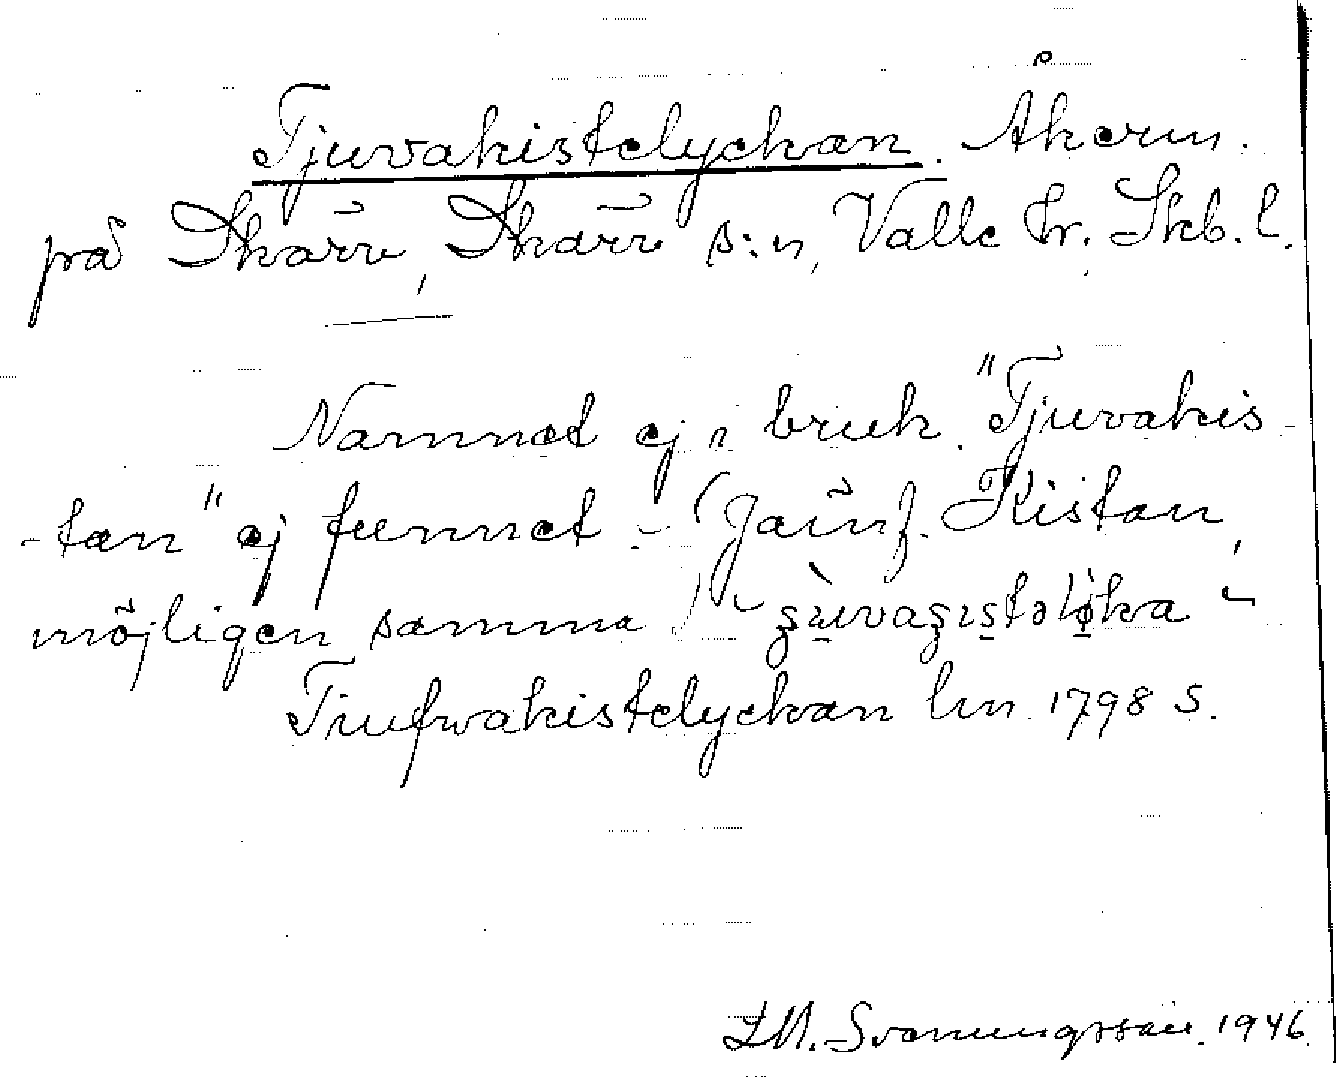 Tjuvakistelyckan. Åkerm.
på Skärv, Skärv s:n, Valle hr. Skb. l.
Namnet ej i bruk. "Tjuvakis-
-tan" ej funnet. - (Jämf. Kistan,
möjligen samma)
Tiufwakistelyckan lm 1798 S.
Svenungsson. 1946.